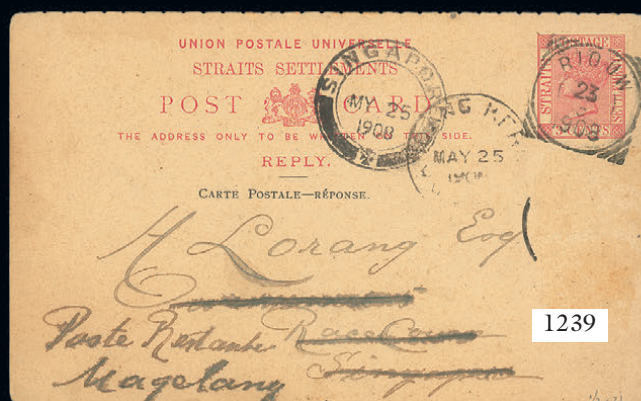 UNION POSTALE UNIVERSELLE
STRAITS SETTLEMENTS
POST CARD
THE ADDRESS ONLY TO BE WRITTEN ON THIS SIDE.
REPLY.
CARTE POSTALE—RÉPONSE.
SINGAPORE
MY 25
1908
MAY 25
RIOUW
23
908
STRAITS
POSTAGE
H Lorang Esq
Race Course
Singapore
Poste Restante
Magelang
1239